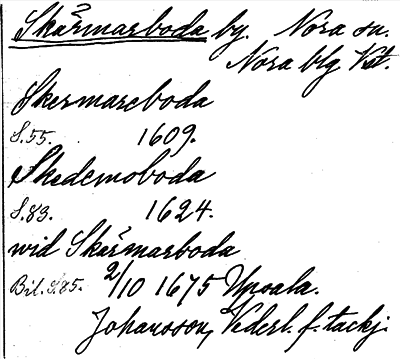 Skärmarboda by. Nora sn.
Nora blg Vst.
Skermareboda
S.55. 1609.
Skedemoboda
S.83. 1624.
wid Skärmarboda
Bil. S.85. 2/10 1675 Upsala.
Johansson, Vederl. f. tackj.